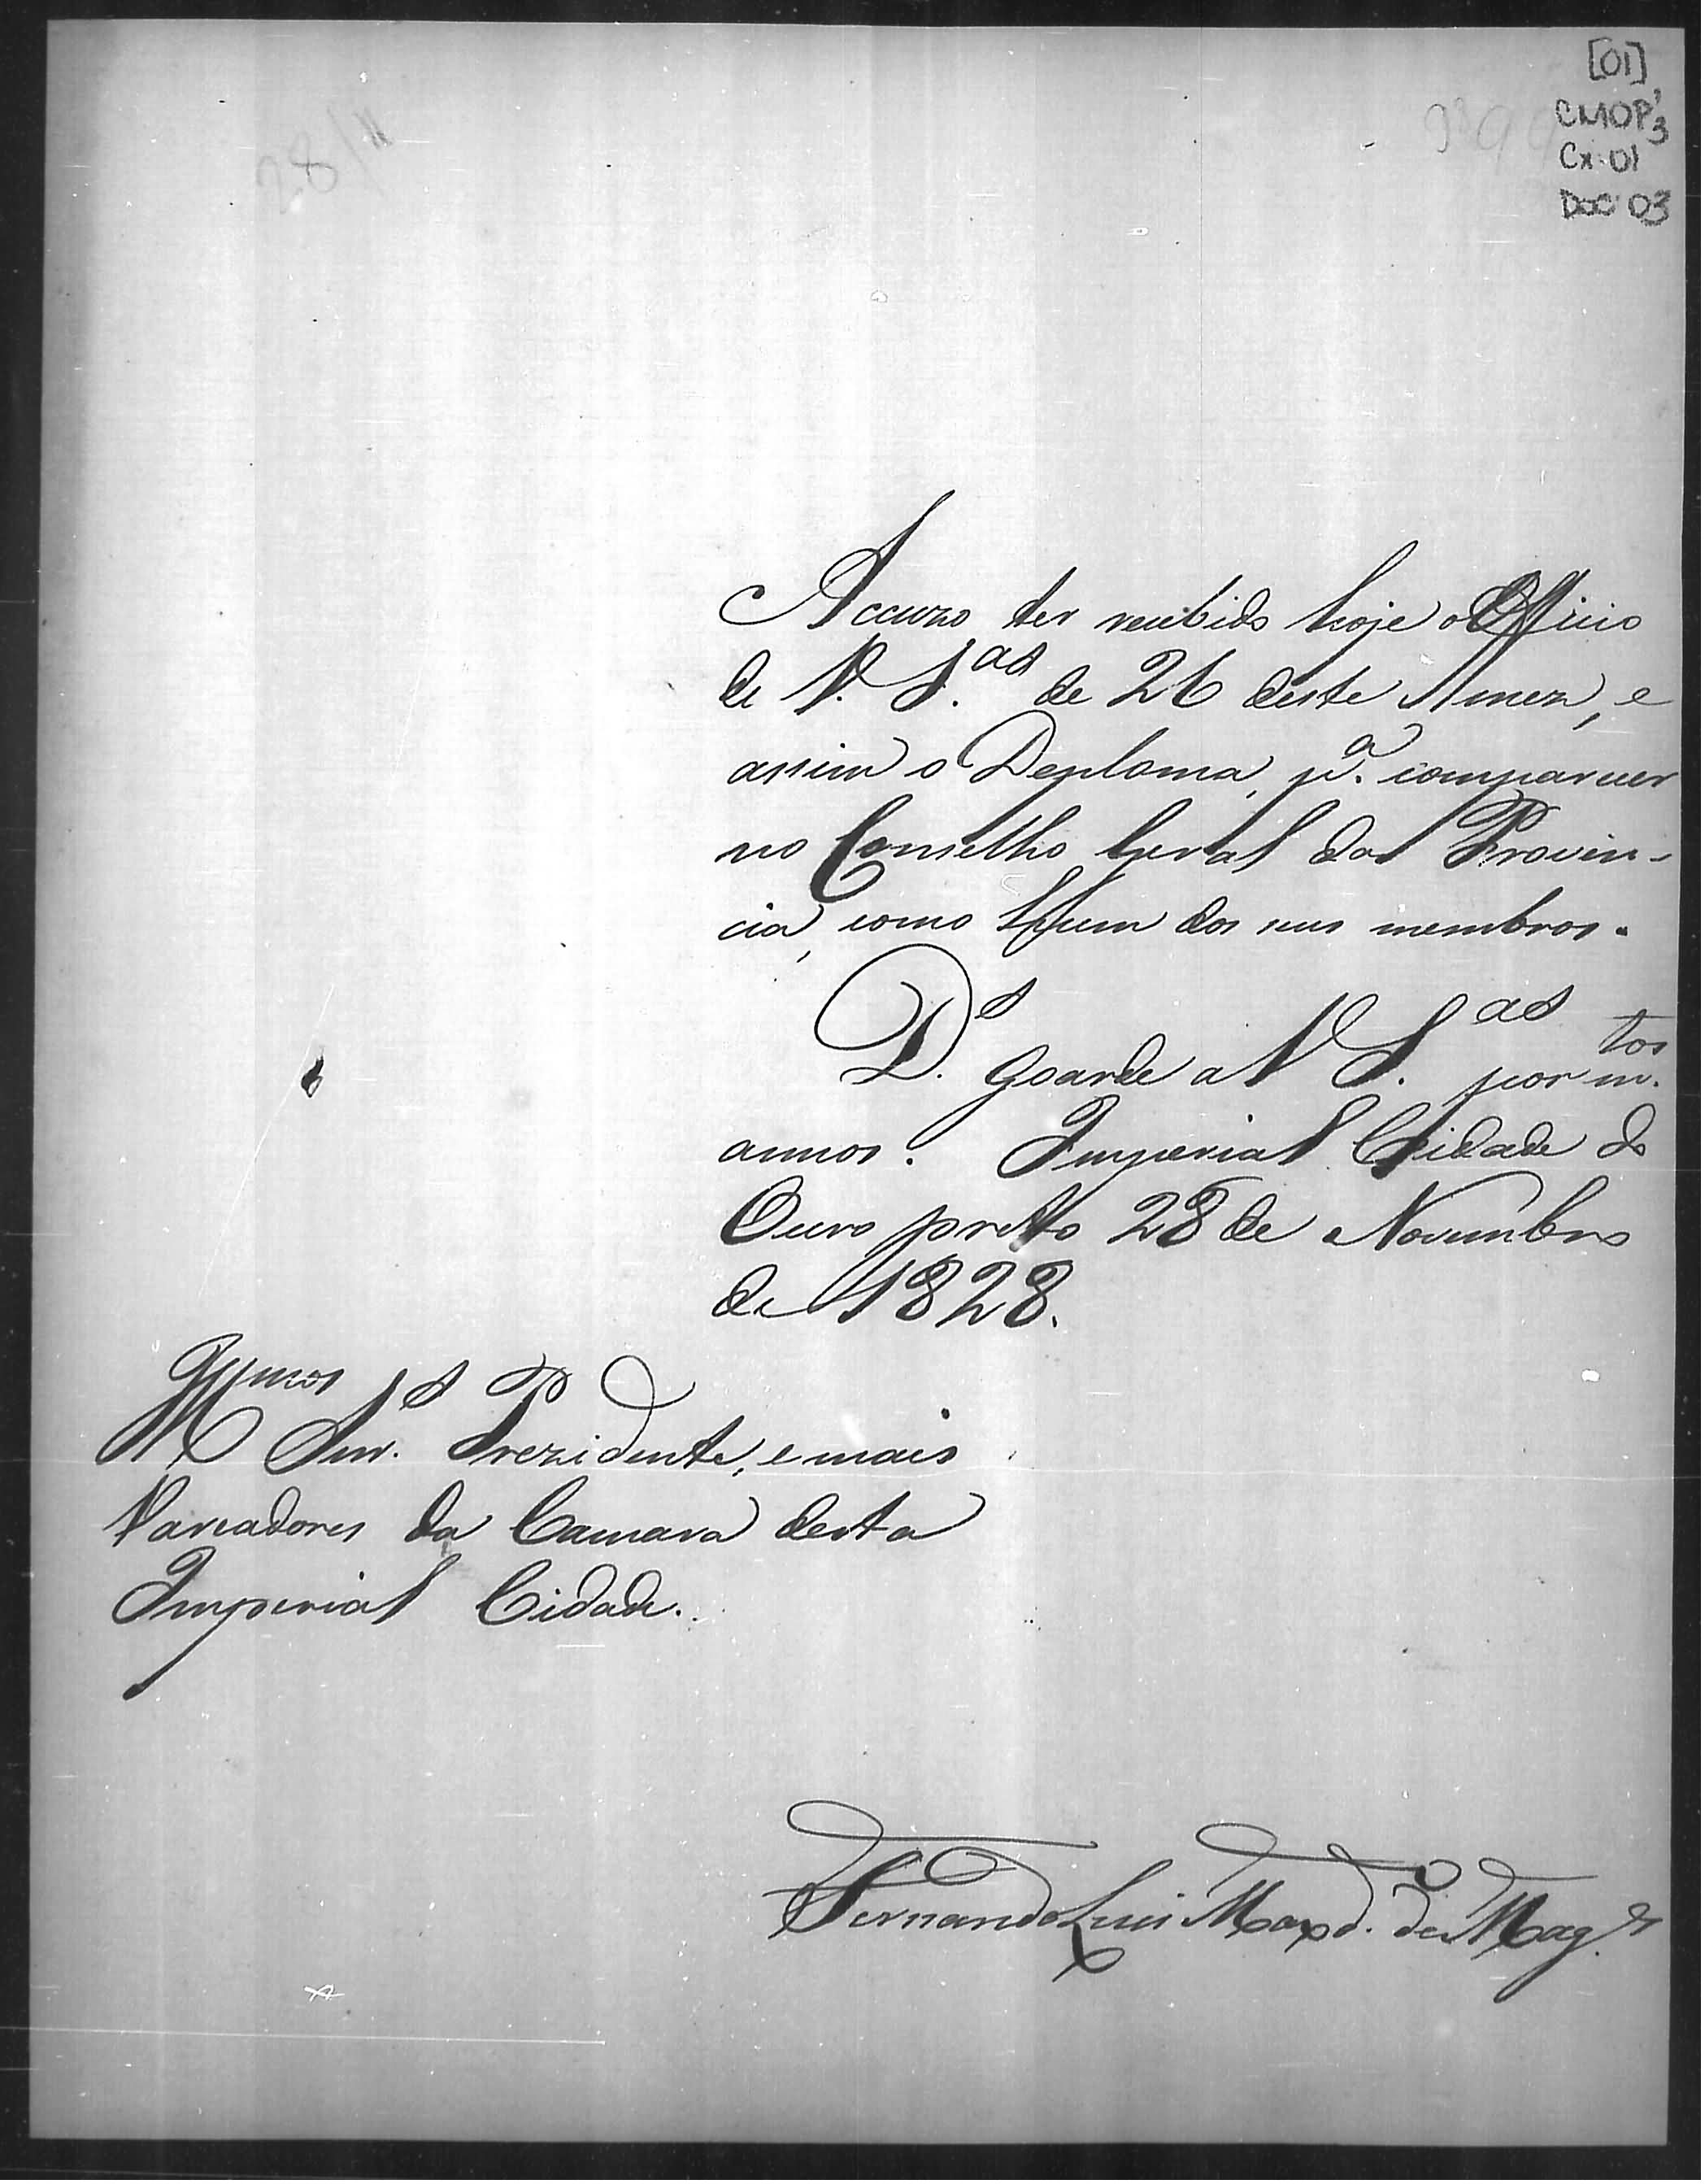 [01]
CMOP 3
Cx. 01
Doc 03
28/11
Accuzo ter recebido hoje o Officio
de V. S.as de 26 deste Mmez, e
assim o Deploma, p.a comparecer
no Conselho Geral da Provin-
cia, como Hum dos seus membros.
D.s Goarde a V S.as por m.tos
annos. Imperial Cidade do
Ouro preto 28 de Novembro
de 1828.
Illmos Snr.s Prezidente, e mais
Vareadores da Camara desta
Imperial Cidade.
Fernando Luis Maxd. de Mag.es